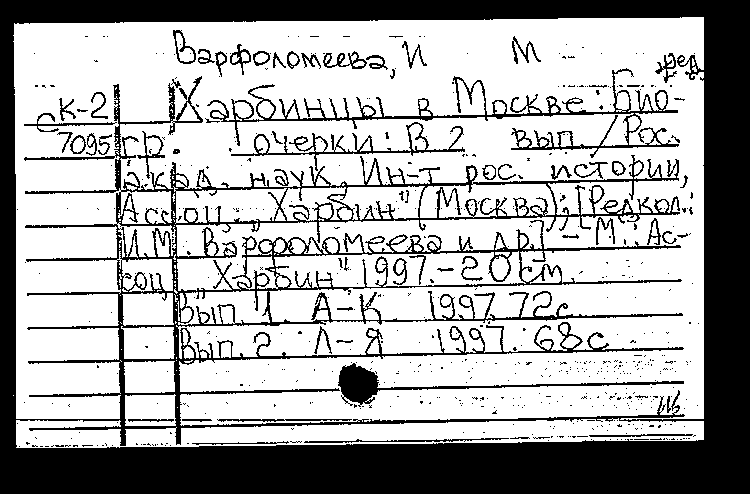 Варфоломеева, И М
ред.
с К-2 Харбинцы в Москве: Био-
7095 гр. очерки: В 2 вып. / Рос.
акад. наук, Ин-т рос. истории,
Ассоц. „Харбин" (Москва); [Редкол.:
И.М. Варфоломеева и др.] – М.: Ас-
соц. „Харбин" 1997. – 20 см.
Вып. 1. А-К. 1997. 72с.
Вып. 2. Л-Я 1997. 68с